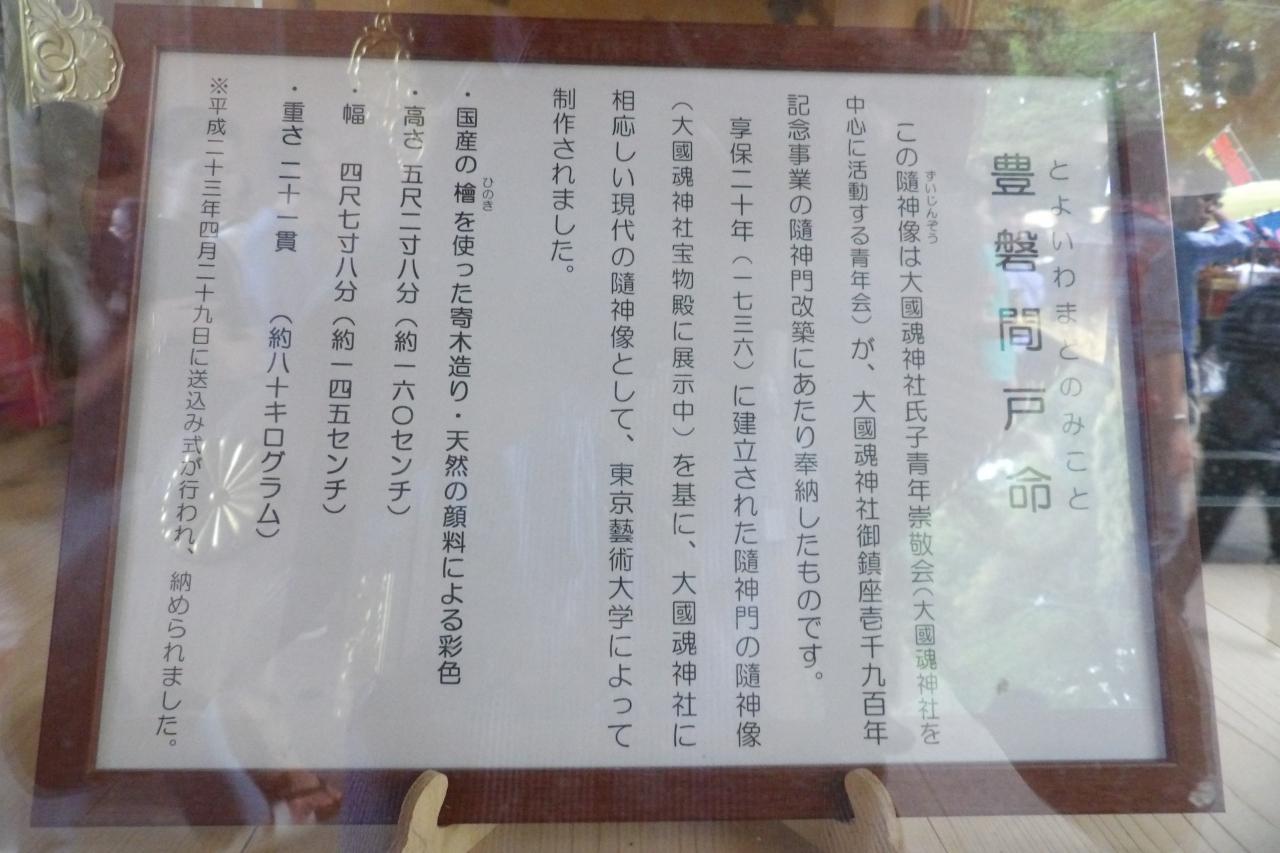 とよいわまとのみこと
豊磐間戸命
ずいじんぞう
この随神像は大國魂神社氏子青年崇敬会（大國魂神社を
中心に活動する青年会）が、大國魂神社御鎮座壱千九百年
記念事業の随神門改築にあたり奉納したものです。
享保二十年（一七三六）に建立された随神門の随神像
（大國魂神社宝物殿に展示中）を基に、大國魂神社に
相応しい現代の随神像として、東京藝術大学によって
制作されました。
ひのき
・国産の檜を使った寄木造り・天然の顔料による彩色
・高さ 五尺二寸八分（約一六〇センチ）
・幅 四尺七寸八分（約一四五センチ）
・重さ 二十一貫 （約八十キログラム）
※平成二十三年四月二十九日に送込み式が行われ、納められました。